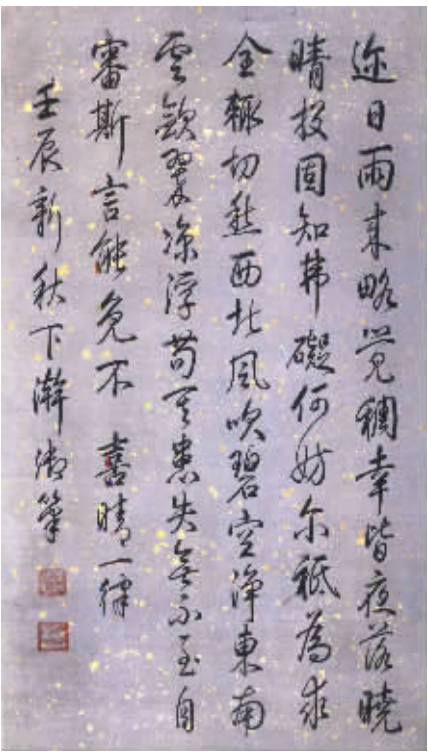 迩日雨来略覺稠幸皆夜落曉
晴投固知弗礙何妨尔祗為求
全輙切愁西北風吹碧空浄東南
雲歛翠凉浮苟其患失無不至自
審斯言能免不 喜晴一律
壬辰新秋下澣御筆